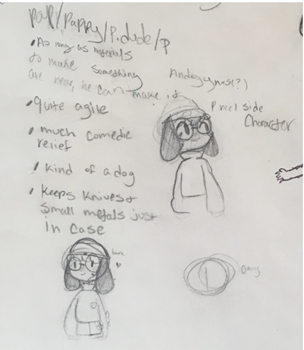 pup/Puppy/P.dude/P
• As long as materials
to make something
are near, he can make it
Androgynous(?)
Prnci side
Character
• Quite agile
• much comedic
relief
• kind of a dog
• keeps knives +
small metals just
in case